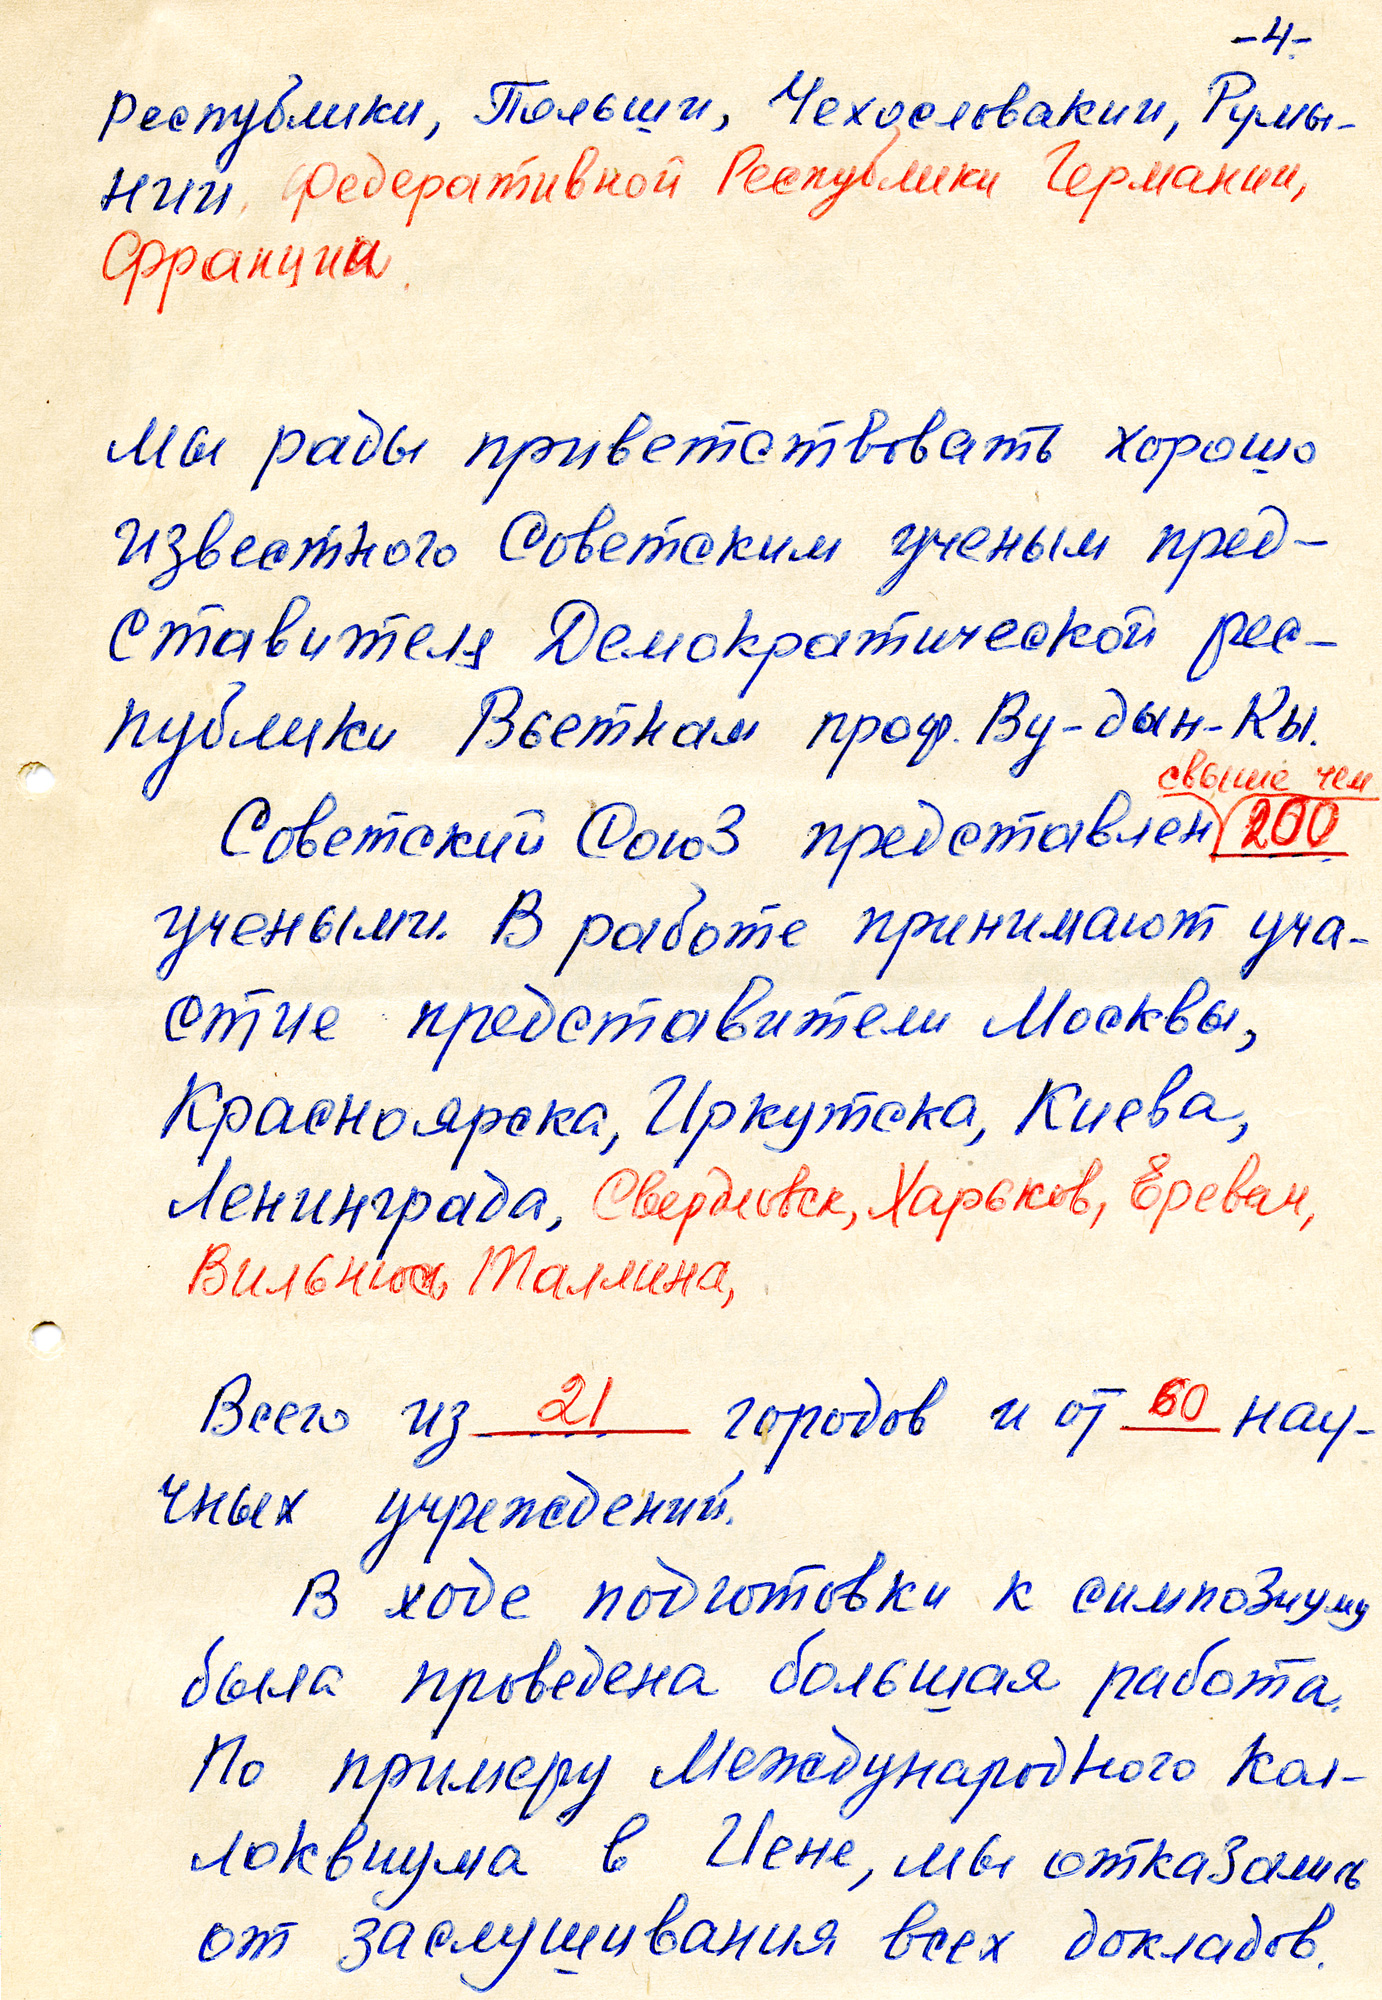 -4-
Республики, Польши, Чехословакии, Румы-
нии, Федеративной Республики Германии,
Франции.
Мы рады приветствовать хорошо
известного Советским ученым пред-
ставителя Демократической рес-
публики Вьетнам проф. Ву-дын-Кы.
свыше чем
Советский Союз представлен 200
учеными. В работе принимают уча-
стие представители Москвы,
Красноярска, Иркутска, Киева,
Ленинграда, Свердловск, Харьков, Ереван,
Вильнюс, Таллина,
Всего из 21 городов и от 60 нау-
чных учреждений.
В ходе подготовки к симпозиуму
была проведена большая работа.
По примеру Международного Кол-
локвиума в Иене, мы отказались
от заслушивания всех докладов.